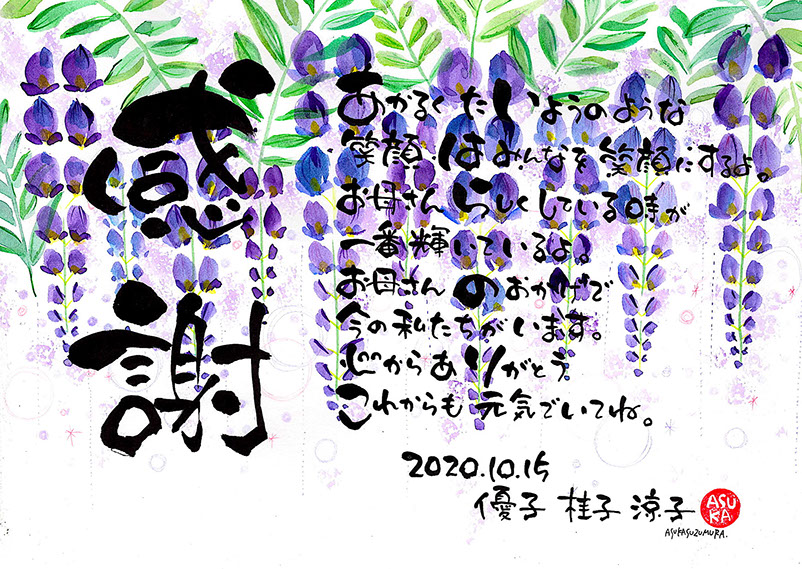 感謝
あかるくたいようのような
笑顔はみんなを笑顔にするよ。
お母さんらしくしている時が
一番輝いているよ。
お母さんのおかげで
今の私たちがいます。
心からありがとう
これからも元気でいてね。
2020.10.15
優子 桂子 涼子
ASU
KA
ASUKASUZUMURA.